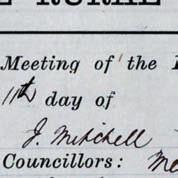 RURAL
Meeting of the
11th day of
J. Mitchell
Councillors: Me